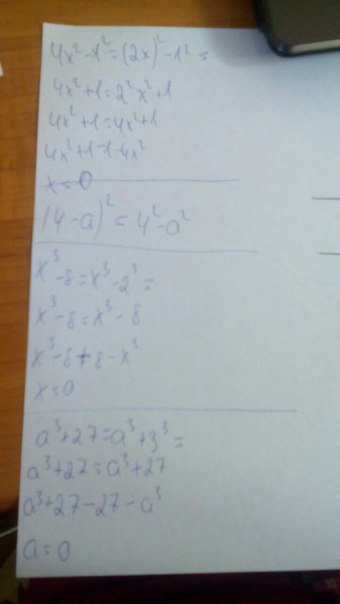 4x²-1²=(2x)²-1²=
4x²+1=2²x²+1
4x²+1=4x²+1
4x²+1=1-4x²
x=0
(4-a)²=4²-a²
x³-8=x³-2³=
x³-8=x³-8
x³-8+8-x³
x=0
a³+27=a³+3³=
a³+27=a³+27
a³+27-27-a³
a=0